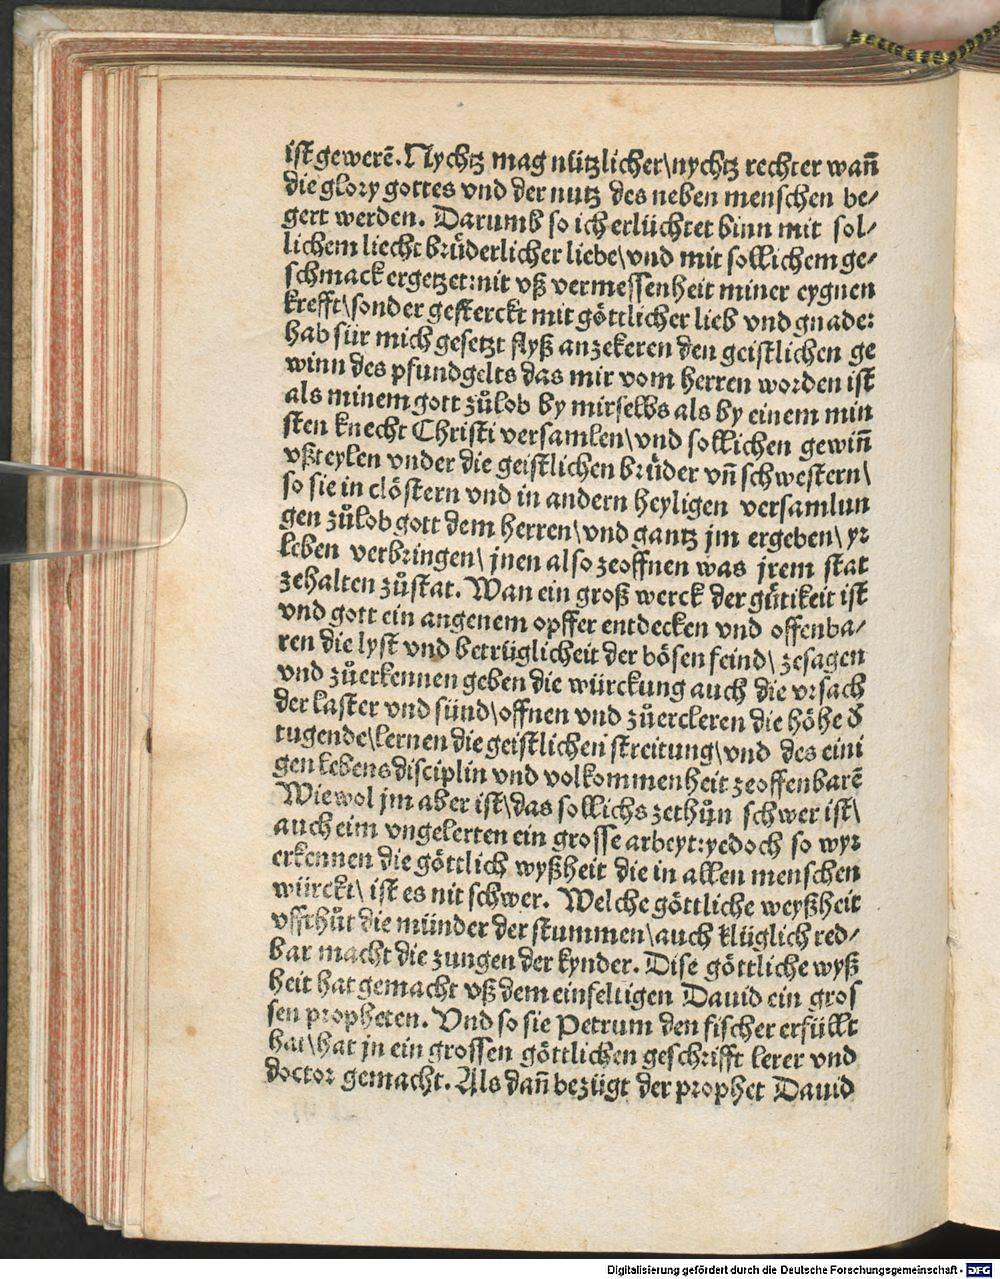 ist gewerẽ. Nychtz mag nützlicher\nychtz rechter wañ
die glory gottes vnd der nutz des neben menschen be⸗
gert werden. Darumb so ich erlüchtet binn mit sol⸗
lichem liecht brüderlicher liebe\vnd mit sollichem ge⸗
schmack ergetzet:nit vß vermessenheit miner eygnen
krefft\sonder gesterckt mit göttlicher lieb vnd gnade:
hab für mich gesetzt flyß anzekeren den geistlichen ge
winn des pfundgelts das mir vom herren worden ist
als minem gott zůlob by mirselbs als by einem min
sten knecht Christi versamlen\vnd sollichen gewiñ
vßteylen vnder die geistlichen brüder vñ schwestern\
so sie in clöstern vnd in andern heyligen versamlun
gen zůlob gott dem herren\vnd gantz jm ergeben\ yr
leben verbringen\ jnen also zeoffnen was jrem stat
zehalten zůstat. Wan ein groß werck der gütikeit ist
vnd gott ein angenem opffer entdecken vnd offenba⸗
ren die lyst vnd betrüglicheit der bösen feind\ zesagen
vnd zůerkennen geben die würckung auch die vrsach
der laster vnd sünd\offnen vnd zůercleren die höhe đ
tugende\lernen die geistlichen streitung\vnd des eini
gen lebens disciplin vnd volkommenheit zeoffenbarẽ
Wiewol jm aber ist\das sollichs zethůn schwer ist\
auch eim vngelerten ein grosse arbeyt:yedoch so wyr
erkennen die göttlich wyßheit die in allen menschen
würckt\ ist es nit schwer. Welche göttliche weyßheit
vffthůt die münder der stummen\auch klüglich red⸗
bar macht die zungen der kynder. Dise göttliche wyß
heit hat gemacht vß dem einfeltigen Dauid ein gros
sen propheten. Vnd so sie Petrum den fischer erfüllt
hat\hat jn ein grossen göttlichen geschrifft lerer vnd
doctor gemacht. Als dañ bezügt der prophet Dauid
Digitalisierung gefördert durch die Deutsche Forschungsgemeinschaft - DFG